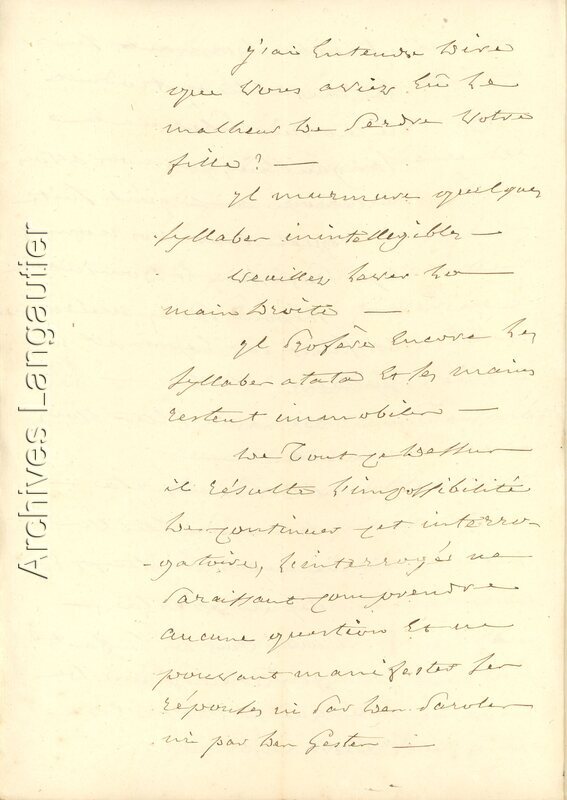 j'ai Entendu Dire
que Vous aviez Eû Le
malheur De Perdre Votre
fille? —
Il murmure quelques
syllabes inintelligibles —
Veuillez Lever La
main Droite —
Il Profère Encore Les
syllabes atata Et ses mains
restent immobiles —
De Tout ce Dessus
il résulte L'impossibilité
De continuer cet interro-
-gatoire, L'interrogé ne
Paraissant comprendre
aucune question Et ne
pouvant manifester ses
réponses ni Par Des Paroles
ni par Des Gestes —
Archives Langautier